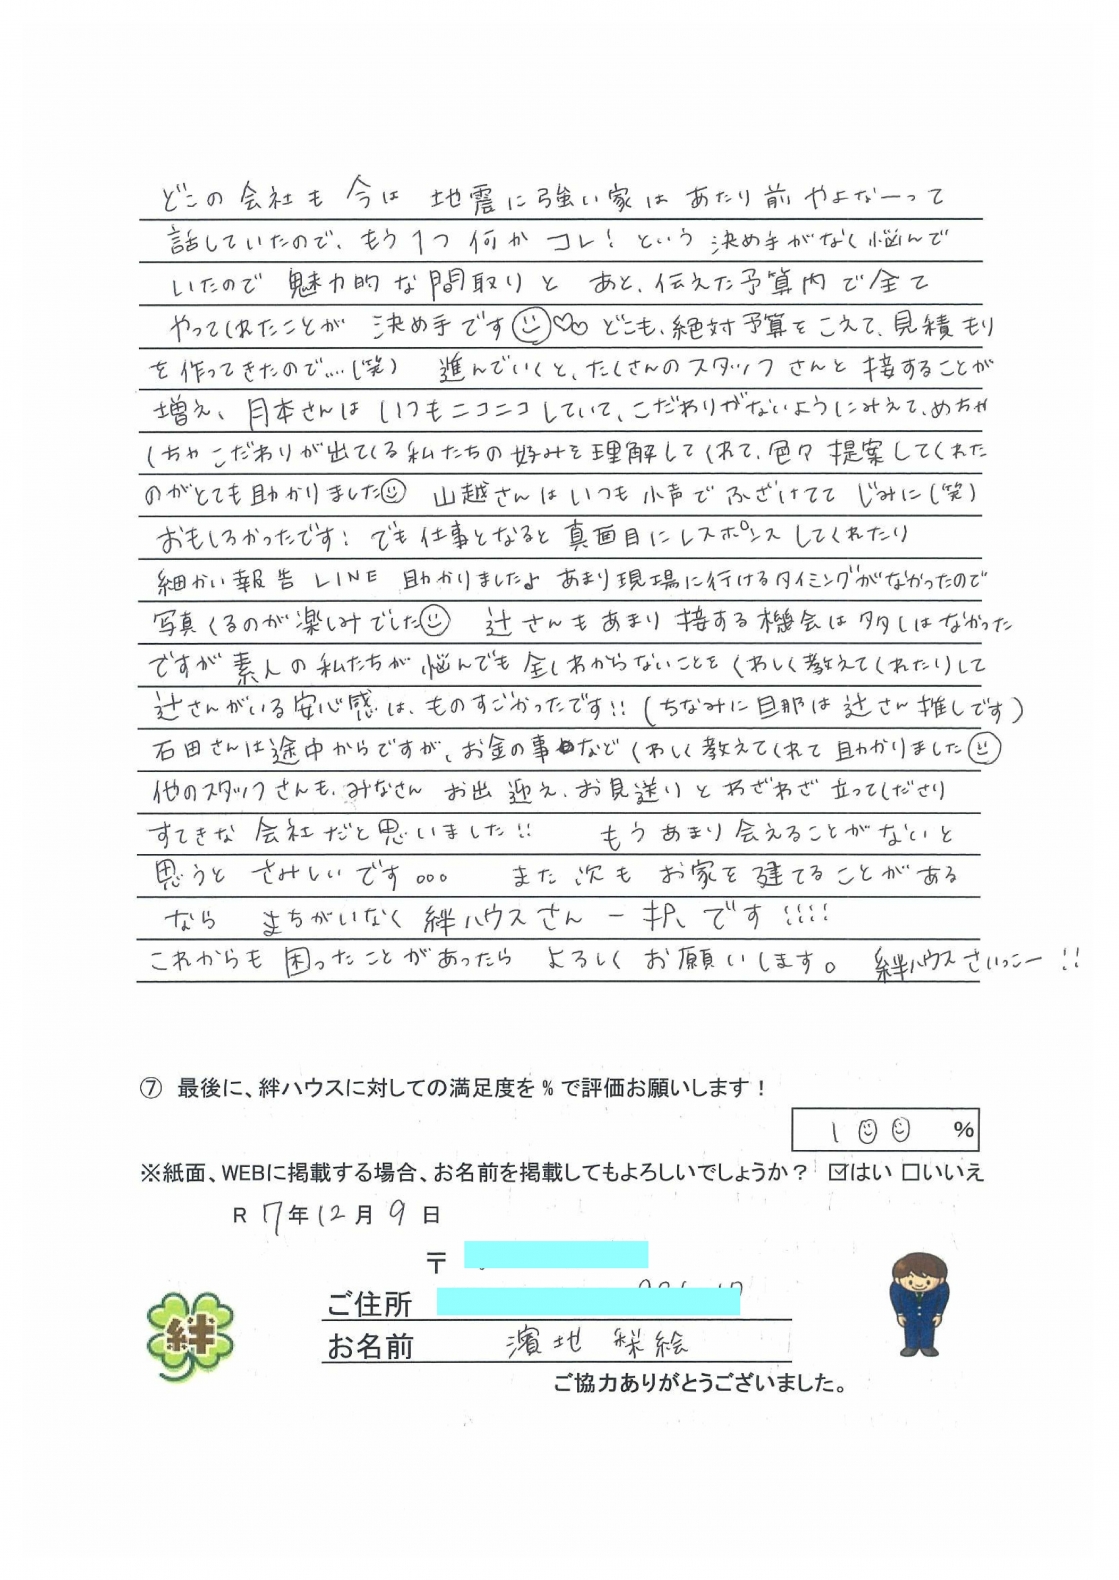 どこの会社も今は 地震に強い家は あたり前やよなーって
話していたので、もう1つ何か コレ! という 決め手がなく悩んで
いたので 魅力的な間取りと あと、伝えた予算内で全て
やってくれたことが 決め手です☺♡♡ どこも、絶対予算をこえて、見積もり
を作ってきたので....(笑) 進んでいくと、たくさんのスタッフさんと接することが
増え、月本さんは いつもニコニコしていて、こだわりがないようにみえて、めちゃ
くちゃこだわりが出てくる私たちの好みを理解してくれて、色々提案してくれた
のがとても助かりました☺ 山越さんはいつも小声でふざけてて じみに(笑)
おもしろかったです! でも仕事となると真面目にレスポンスしてくれたり
細かい報告LINE 助かりましたよ あまり現場に行けるタイミングがなかったので
写真くるのが楽しみでした☺ 辻さんもあまり接する機会は多くはなかった
ですが素人の私たちが悩んでも全くわからないことをくわしく教えてくれたりして
辻さんがいる安心感は、ものすごかったです!! (ちなみに旦那は辻さん推しです)
石田さんは途中からですが、お金の事など くわしく教えてくれて助かりました☺
他のスタッフさんも、みなさん お出迎え、お見送りと わざわざ立ってくださり
すてきな会社だと思いました!! もうあまり会えることがないと
思うと さみしいです。。。 また次も お家を建てることがある
なら まちがいなく絆ハウスさん一択です!!!!
これからも困ったことがあったら よろしくお願いします。 絆ハウスさいっこー!!
⑦ 最後に、絆ハウスに対しての満足度を%で評価お願いします!
100 %
※紙面、WEBに掲載する場合、お名前を掲載してもよろしいでしょうか? ☑はい □いいえ
R 7年12月9日
〒
ご住所
お名前 濱地 梨絵
絆
ご協力ありがとうございました。